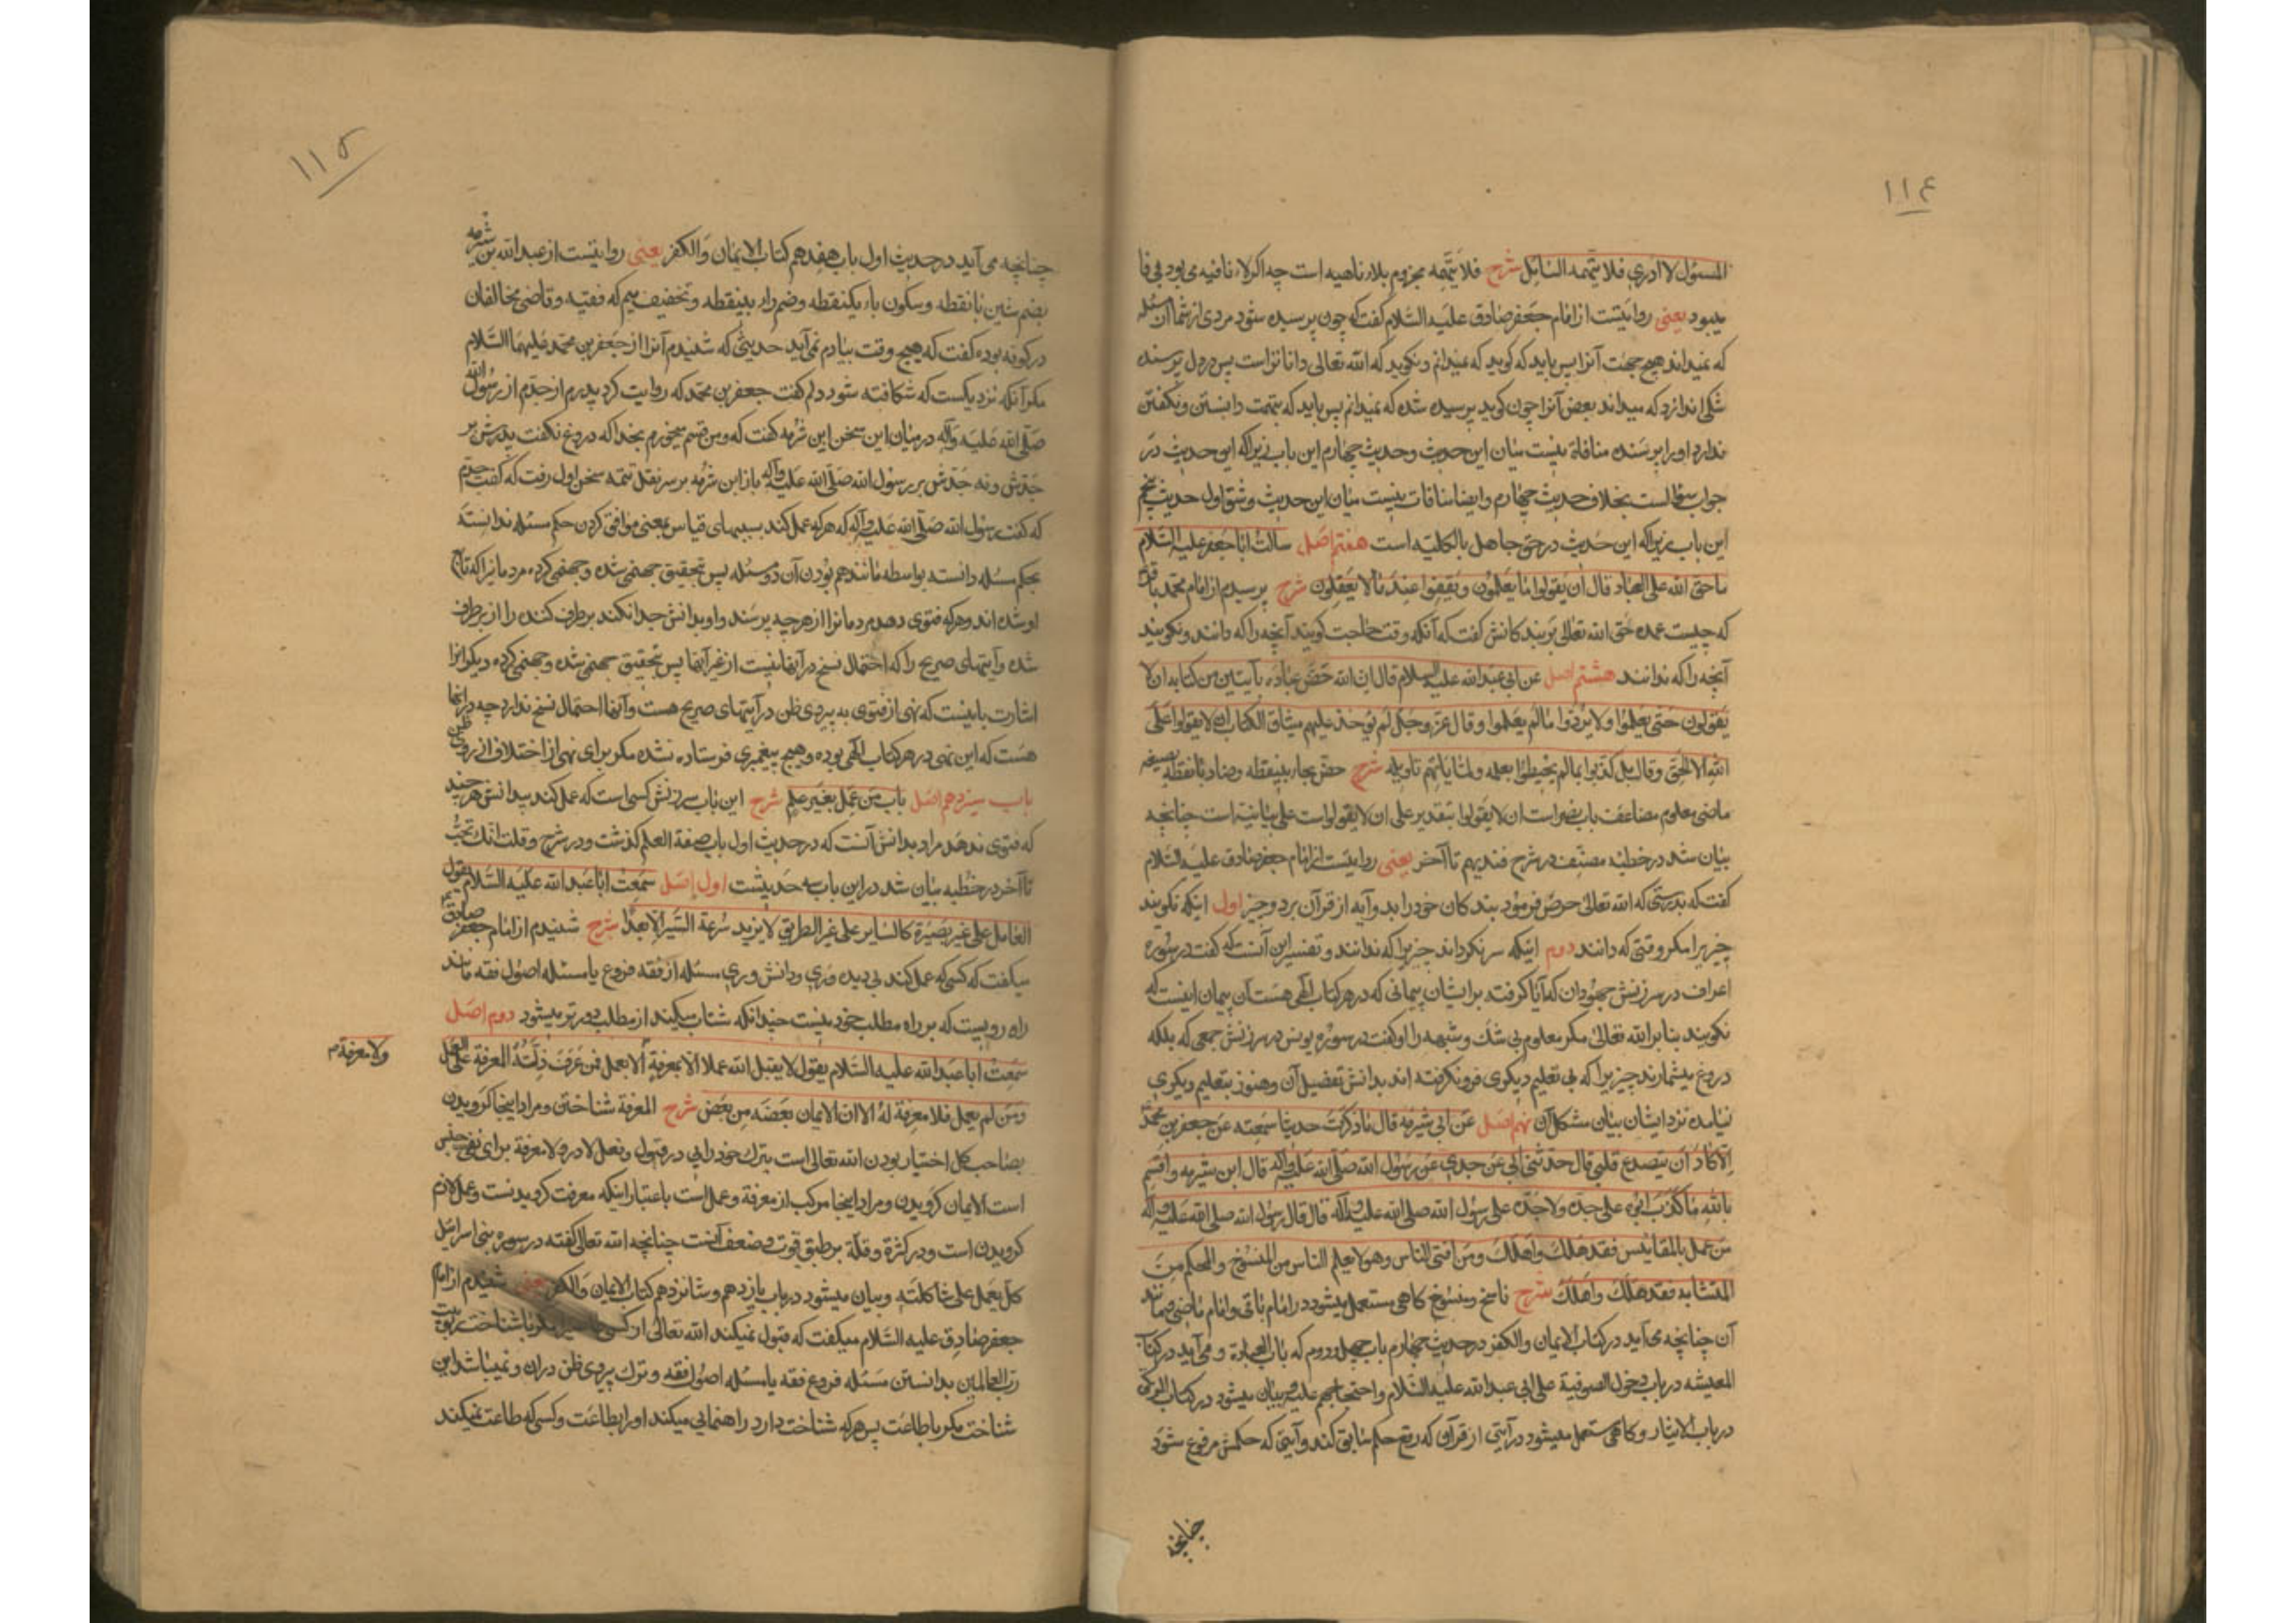 ١١٤
المسئول لا ادری فلا یتهمه السائل شرح فلا یتهمه مجزوم بلاء ناهیه است چه اکر لاء نافیه می بود بی فا
میبود یعنی روایتست از امام جعفر صادق علیه السلام گفت که چون پرسیده شود مردی از شما آن مسئله
که نمیداند هیچ جهت آنرا پس باید که کوید که نمیدانم و نکوید که الله تعالی داناتر است پس در دل پرسنده
شکی اندازد که میداند بعض آنرا چون کوید پرسیده شده که نمیدانم پس باید که بتهمت دانستن و نکفتن
ندارد او را پرسنده منافاة نیست میان این حدیث و حدیث چهارم این باب زیرا که این حدیث در
جواب سؤالست بخلاف حدیث چهارم و ایضا منافات نیست میان این حدیث و شق اول حدیث پنجم
این باب زیرا که این حدیث در حق جاهل بالکلیه است هفتم اصل سالت ابا جعفر علیه السلام
ما حق الله علی العباد قال ان یقولوا ما یعلمون و یقفوا عند ما لا یعقلون شرح پرسیدم از امام محمد باقر
که چیست عمده حق الله تعالی بر بندکانش گفت که آنکه وقت حاجت کویند آنچه را که دانند و نکویند
آنچه را که ندانند هشتم اصل عن ابی عبد الله علیه السلام قال ان الله حض عباده بآیتین من کتابه ان لا
یقولون حتی یعلموا ولا یردوا ما لم یعلموا و قال عز وجل الم یؤخذ علیهم میثاق الکتاب ان لا یقولوا علی
الله الا الحق و قال بل کذبوا بما لم یحیطوا بعلمه و لما یاتهم تاویله شرح حض بحاء بینقطه و ضاد بانقطه بصیغه
ماضی معلوم مضاعف باب نصر است ان لا یقولوا بتقدیر علی ان لا یقولوا است علی بنائیه است چنانچه
بیان شد در خطبه مصنف در شرح فندبهم تا آخر یعنی روایتست از امام جعفر صادق علیه السلام
گفت که بدرستی که الله تعالی حرص فرمود بندکان خود را بدو آیه از قرآن بر دو چیز اول اینکه نکویند
چیزیرا مکر وقتی که دانند دوم اینکه سر نکرداند چیزیرا که ندانند و تفسیر این آنست که گفت در سوره
اعراف در سرزنش جهودان که آیا کرفته بر ایشان پیمانی که در هر کتاب الهی هست آن پیمان اینست که
نکویند بنا بر الله تعالی مکر معلوم بی شک و شبهه را او گفت در سوره یونس در سرزنش جمعی که بلکه
دروغ میشمارند چیزیرا که بی تعلیم دیکری فرو نکرفته اند بدانش تفصیل آن و هنوز بتعلیم دیکری
نیامده نزد ایشان بیان مشکل آن نهم اصل عن ابی شبرمه قال ما ذکرت حدیثا سمعته عن جعفر بن محمد
الا کاد ان یتصدع قلبی قال حدثنی ابی عن جدی عن رسول الله صلی الله علیه وآله قال ابن شبرمه و اقسم
بالله ما کذب ابوه علی جده ولا جده علی رسول الله صلی الله علیه وآله قال قال رسول الله صلی الله علیه وآله
من عمل بالمقائیس فقد هلک و اهلک ومن افتی الناس وهو لا یعلم الناس من المنسوخ والمحکم من
المتشابه فقد هلک و اهلک شرح ناسخ و منسوخ کاهی مستعمل میشود در امام باقی و امام ماضی و مانند
آن چنانچه می آید در کتاب الایمان والکفر در حدیث چهارم باب چهل و دوم که باب العبادة و می آید در کتاب
المعیشه در باب دخول الصوفیة علی ابی عبد الله علیه السلام و احتجاجهم علیه و بیان میشود در کتاب الزکوة
در باب الایثار و کاهی مستعمل میشود در آیتی از قرآن که رفع حکم سابق کند و آیتی که حکمش مرفوع شود
چنانچه
١١٥
چنانچه می آید در حدیث اول باب هفدهم کتاب الایمان والکفر یعنی روایتست از عبد الله بن شبرمه
بضم شین بانقطه و سکون باء یکنقطه و ضم راء بینقطه و تخفیف میم که فقیه و قاضی مخالفان
در کوفه بوده گفت که هیچ وقت بیادم نمی آید حدیثی که شنیدم آنرا از جعفر بن محمد علیهما السلام
مکر آنکه نزدیکست که شکافته شود دلم گفت جعفر بن محمد که روایت کرد پدرم از جدم از رسول الله
صلی الله علیه وآله در میان این سخن ابن شبرمه گفت که و من قسم میخورم بخدا که دروغ نکفت پدرش بر
جدش و نه جدش بر رسول الله صلی الله علیه وآله باز ابن شبرمه بر سر نقل تتمه سخن اول رفت که گفت جدم
که گفت رسول الله صلی الله علیه وآله که هر که عمل کند بسببهای قیاس بمعنی موافق کردن حکم مسئله ندانسته
بحکم مسئله دانسته بواسطه مانند هم بودن آن دو مسئله پس بتحقیق جهنمی شده و جهنمی کرده مردمانرا که تابع
او شده اند و هر که فتوی دهد مردمانرا از هر چه پرسند و او بدانش جدا نکند بر طرف کننده را از بر طرف
شده و آیتهای صریح را که احتمال نسخ در آنها نیست از غیر آنها پس بتحقیق جهنمی شده و جهنمی کرده دیکرانرا
اشارت باینست که نهی از فتوی به پیروی ظن در آیتهای صریح هست و آنها احتمال نسخ ندارد چه در آنها
هست که این نهی در هر کتاب الهی بوده و هیچ پیغمبری فرستاده نشده مکر برای نهی از اختلاف از روی ظن
باب سیزدهم اصل باب من عمل بغیر علم شرح این باب سرزنش کسی است که عمل کند بیدانش هر چند
که فتوی ندهد مراد بدانش آنست که در حدیث اول باب صفة العلم کذشت و در شرح و قلت انک تحب
تا آخر در خطبه بیان شد در این باب سه حدیثست اول اصل سمعت ابا عبد الله علیه السلام یقول
العامل علی غیر بصیرة کالسایر علی غیر الطریق لا یزید سرعة السیر الا بعدا شرح شنیدم از امام جعفر صادق
میکفت که کسی که عمل کند بی دیده وری و دانش وری مسئله از فقه فروع یا مسئله اصول فقه مانند
راه رویست که بر راه مطلب خود نیست چندانکه شتاب میکند از مطلب دورتر میشود دوم اصل
سمعت ابا عبد الله علیه السلام یقول لا یقبل الله عملا الا بمعرفة الا بعمل فمن عرف دلته المعرفة علی العمل
ولا معرفة م
ومن لم یعمل فلا معرفة له الا ان الایمان بعضه من بعض شرح المعرفة شناختن و مراد اینجا کرویدن
بصاحب کل اختیار بودن الله تعالی است بترک خود رایی در قبول و فعل لا در ولا معرفة برای نفی جنس
است الایمان کرویدن و مراد اینجا مرکب از معرفة و عمل است باعتبار اینکه معرفت کرویدنست و عمل لازم
کرویدن است و در کثرة و قلة بر طبق قوت و ضعف آنست چنانچه الله تعالی گفته در سوره بنی اسرائیل
کل یعمل علی شاکلته و بیان میشود در باب یازدهم و شانزدهم کتاب الایمان والکفر یعنی شنیدم از امام
جعفر صادق علیه السلام میکفت که قبول نمیکند الله تعالی از کسی مکر با شناخت ربوبیت
رب العالمین بدانستن مسئله فروع فقه یا مسئله اصول فقه و ترک پیروی ظن در ان و نمیباشد این
شناخت مکر با طاعت پس هر که شناخت دارد راهنمایی میکند او را بطاعت و کسی که طاعت نمیکند